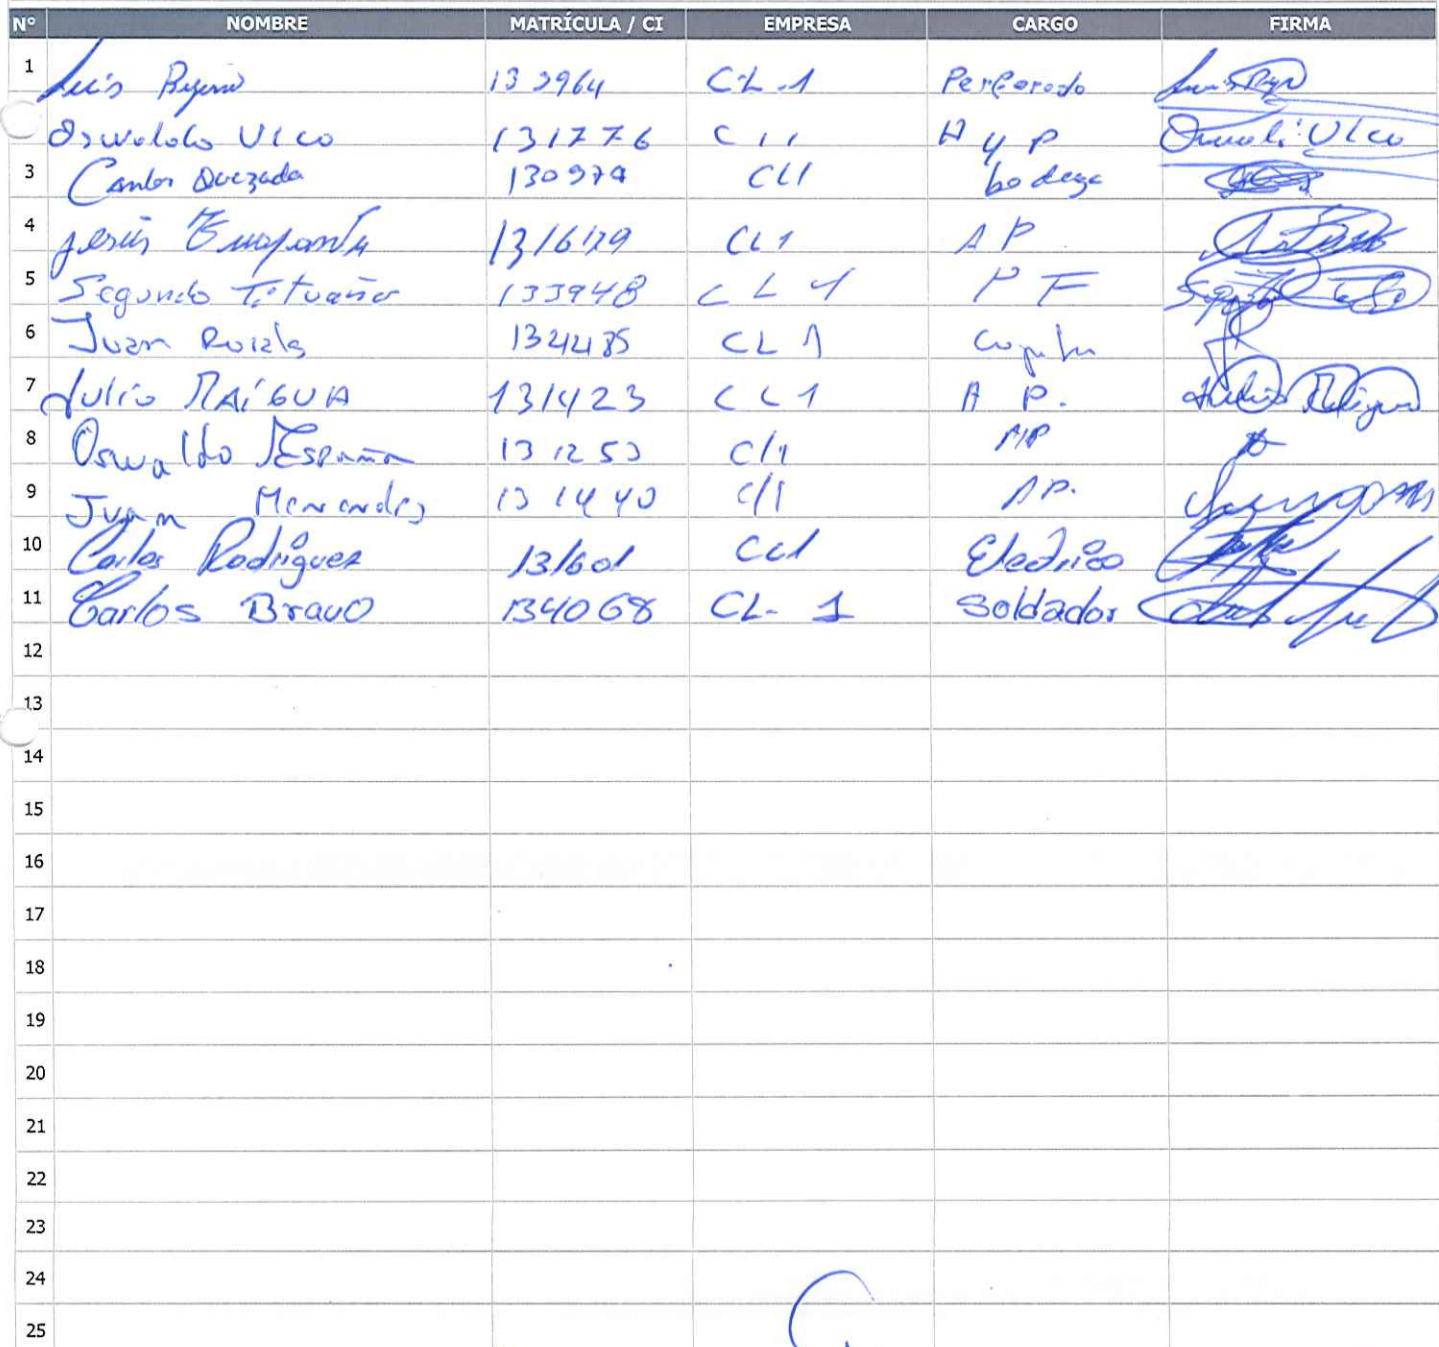 N° NOMBRE MATRÍCULA / CI EMPRESA CARGO FIRMA
1 Luis 133964 CL-1 Perforado
Oswaldo Ulco 131776 C11 A y P
3 Carlos Quezada 130979 CL1 bodega
4 Jesús CL1 AP
5 Segundo Tituaña 133948 CL1 PF
6 Juan CL1
7 Julio MAÍGUA 131423 CL1 A P.
8 Oswaldo España 131253 C/1
9 Juan Menendez 131440 C/1 AP.
10 Carlos Rodríguez 131601 CL1 Electrico
11 Carlos Bravo 134068 CL-1 Soldador
12
13
14
15
16
17
18
19
20
21
22
23
24
25